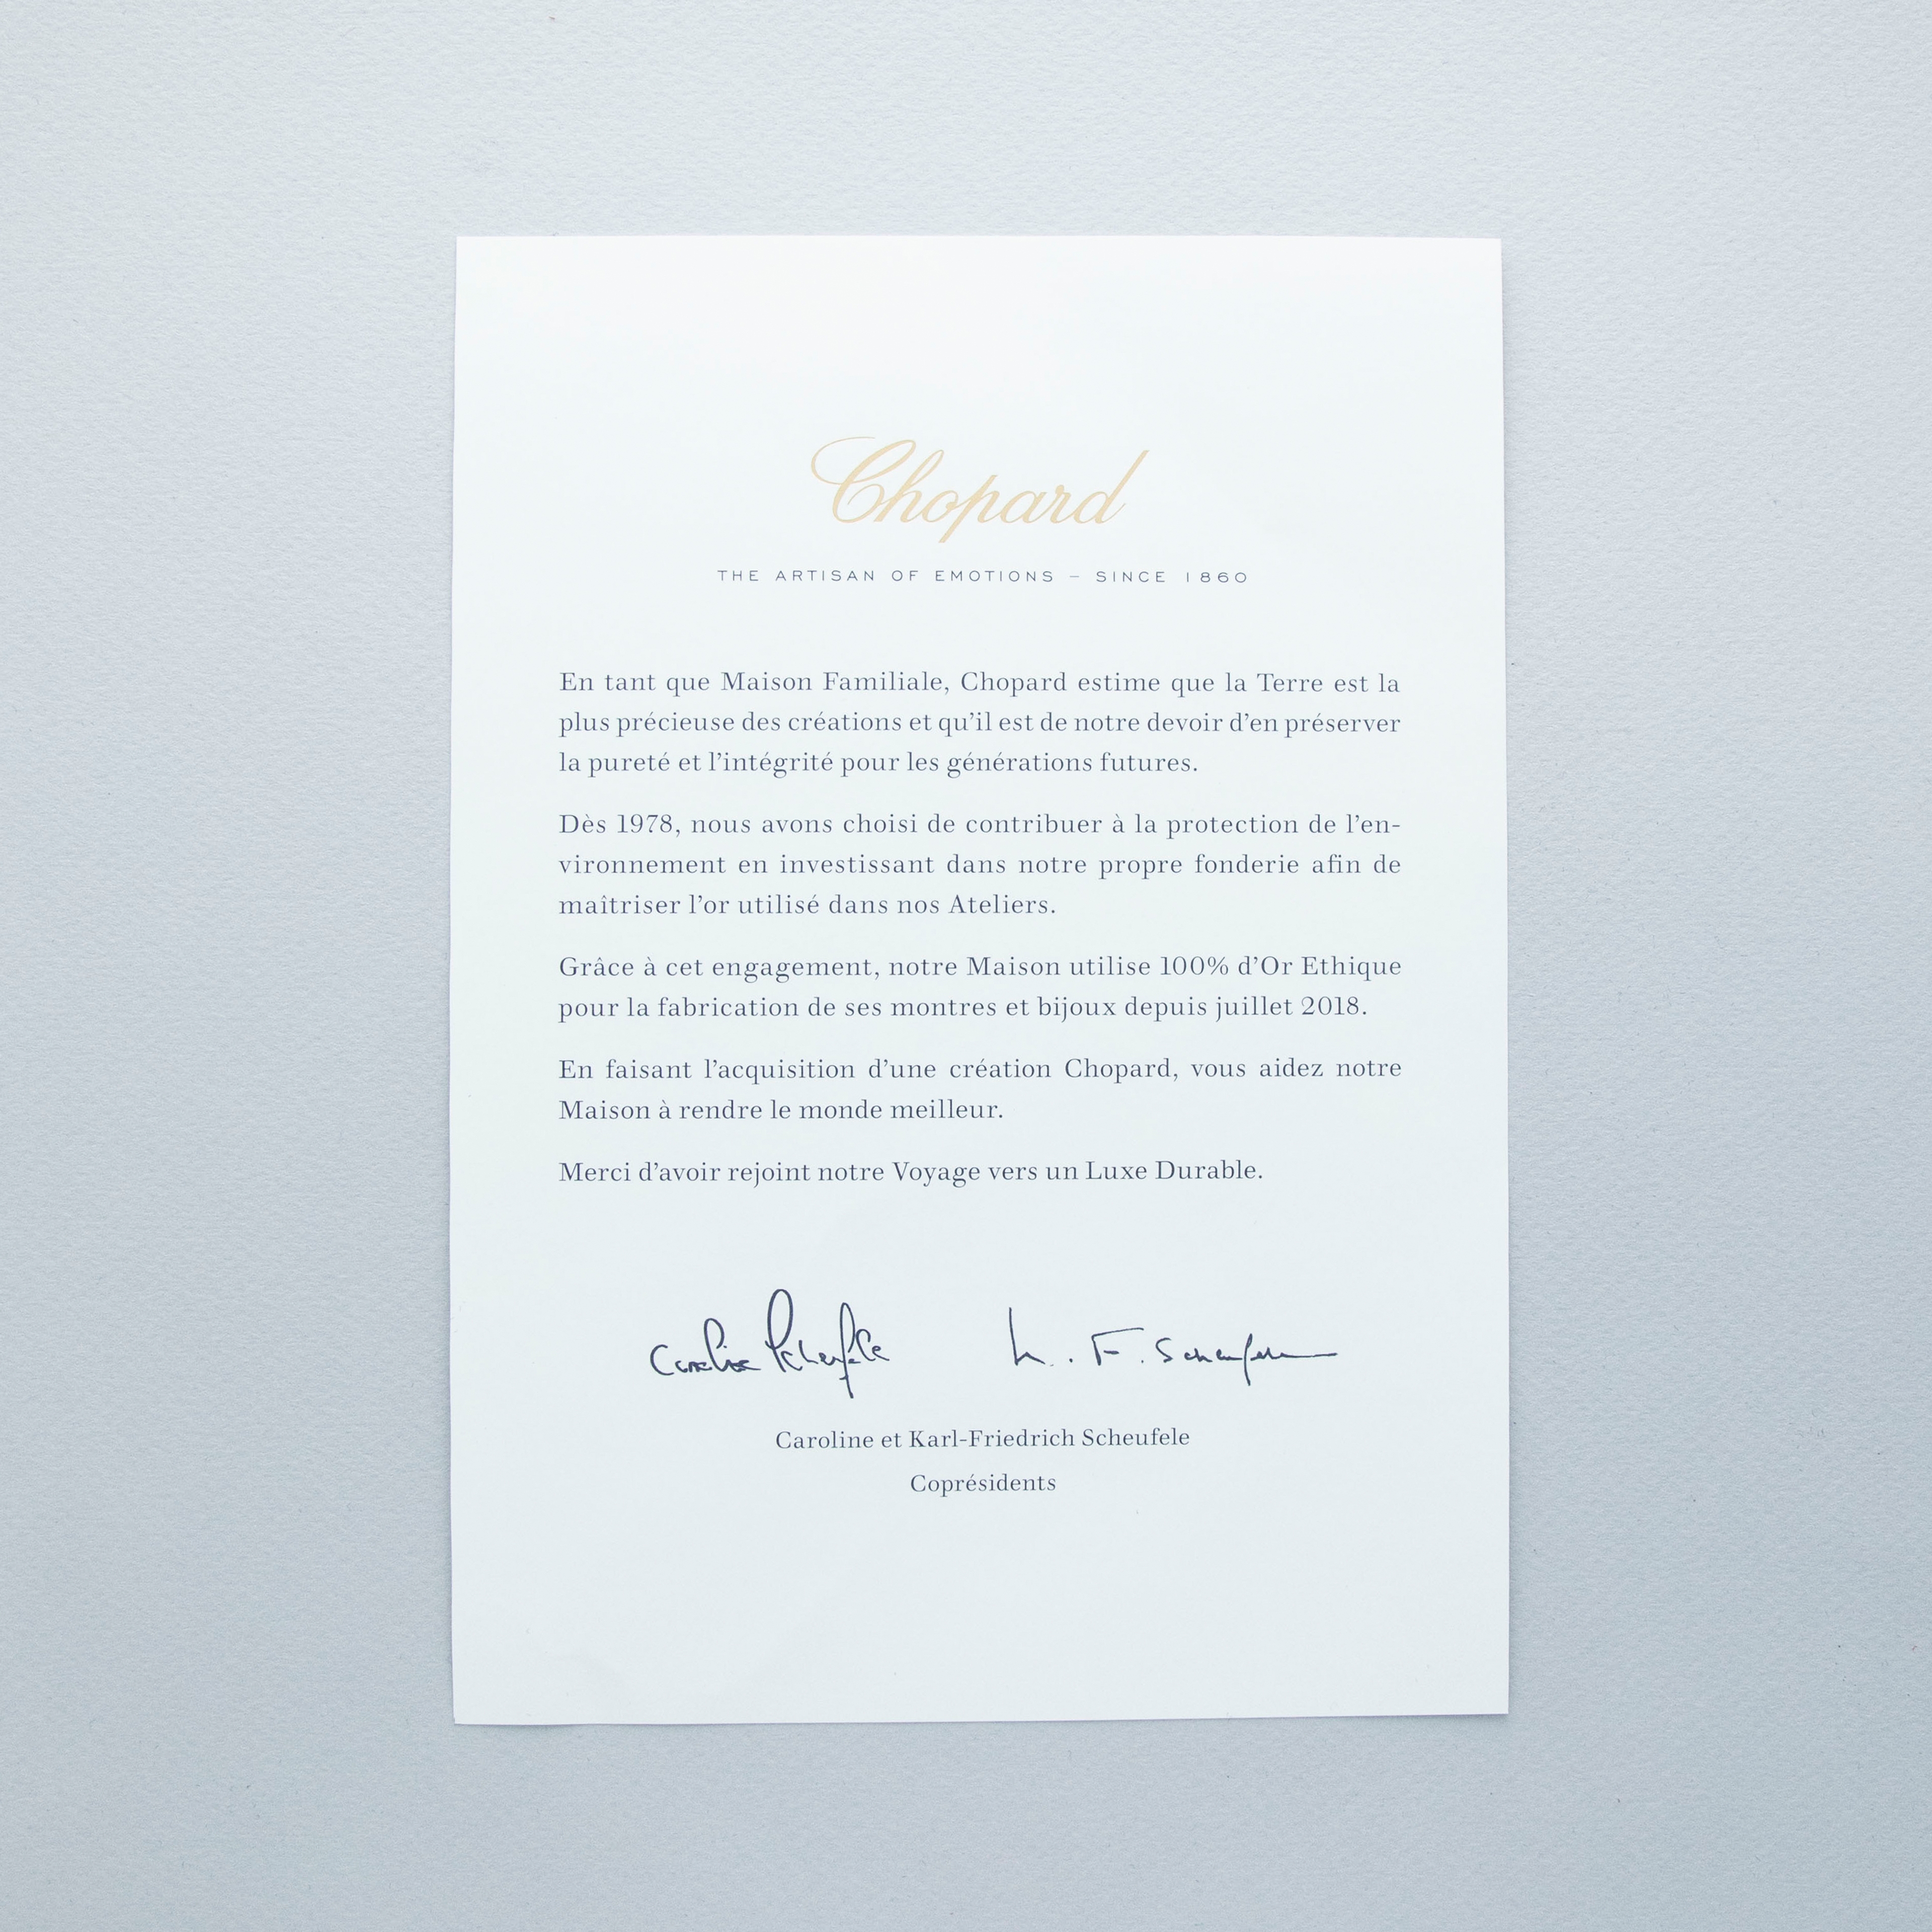 Chopard
THE ARTISAN OF EMOTIONS – SINCE 1860
En tant que Maison Familiale, Chopard estime que la Terre est la
plus précieuse des créations et qu’il est de notre devoir d’en préserver
la pureté et l’intégrité pour les générations futures.
Dès 1978, nous avons choisi de contribuer à la protection de l’en-
vironnement en investissant dans notre propre fonderie afin de
maîtriser l’or utilisé dans nos Ateliers.
Grâce à cet engagement, notre Maison utilise 100% d’Or Ethique
pour la fabrication de ses montres et bijoux depuis juillet 2018.
En faisant l’acquisition d’une création Chopard, vous aidez notre
Maison à rendre le monde meilleur.
Merci d’avoir rejoint notre Voyage vers un Luxe Durable.
Caroline Scheufele K. F. Scheufele
Caroline et Karl-Friedrich Scheufele
Coprésidents